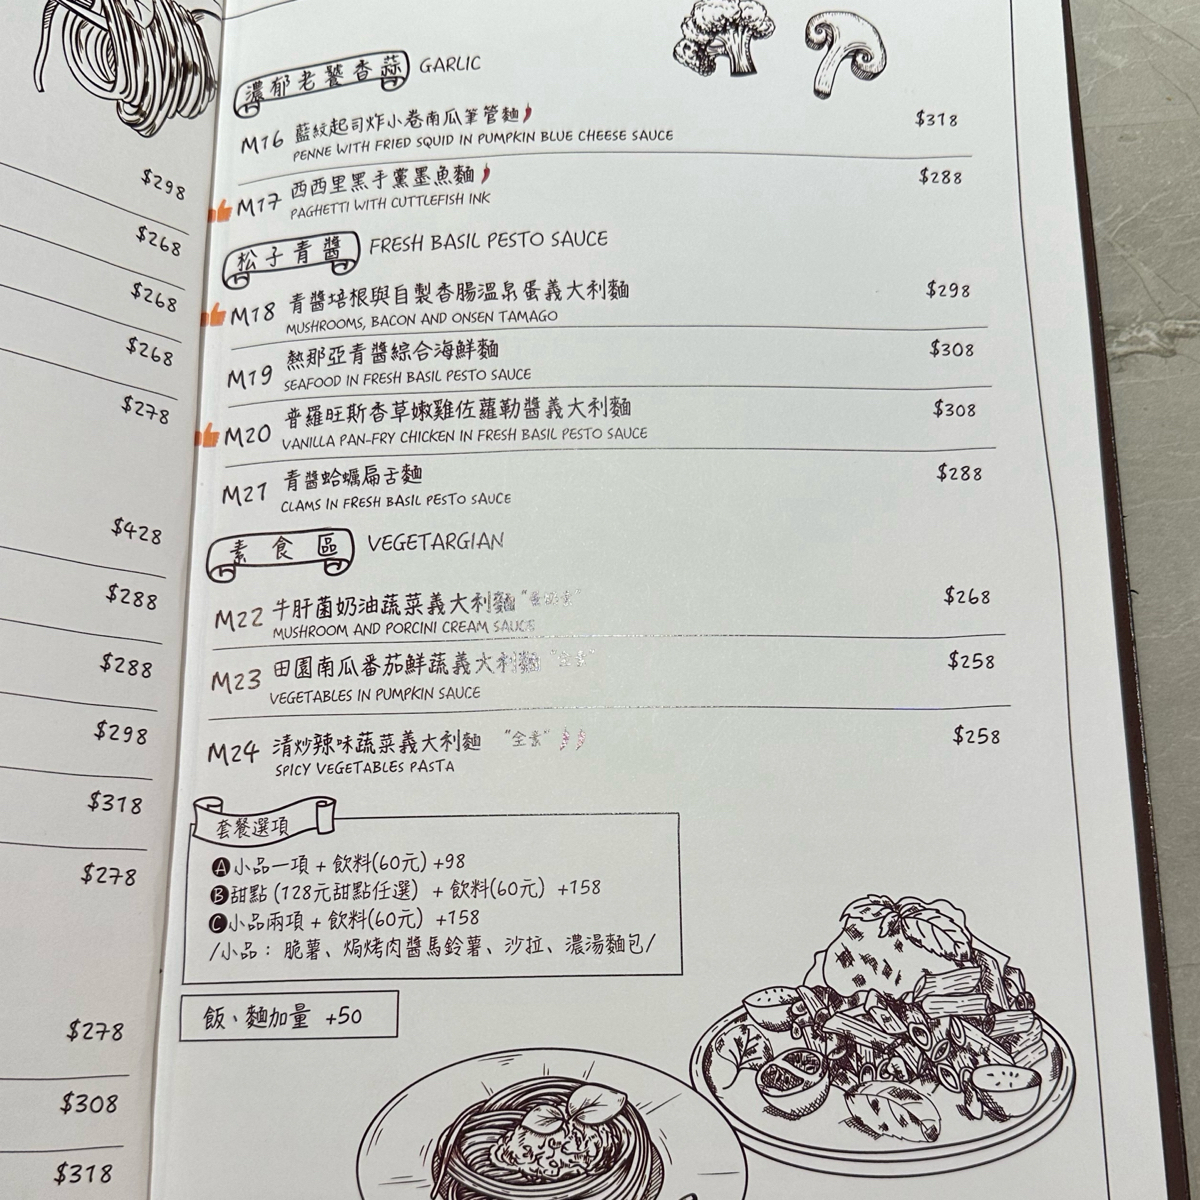 $298
$268
$268
$268
$278
$428
$288
$288
$298
$318
$278
$278
$308
$318
濃郁老饕香蒜 GARLIC
M16 藍紋起司炸小卷南瓜筆管麵 $318
PENNE WITH FRIED SQUID IN PUMPKIN BLUE CHEESE SAUCE
M17 西西里黑手黨墨魚麵 $288
PAGHETTI WITH CUTTLEFISH INK
松子青醬 FRESH BASIL PESTO SAUCE
M18 青醬培根與自製香腸溫泉蛋義大利麵 $298
MUSHROOMS, BACON AND ONSEN TAMAGO
M19 熱那亞青醬綜合海鮮麵 $308
SEAFOOD IN FRESH BASIL PESTO SAUCE
M20 普羅旺斯香草嫩雞佐蘿勒醬義大利麵 $308
VANILLA PAN-FRY CHICKEN IN FRESH BASIL PESTO SAUCE
M21 青醬蛤蠣扁舌麵 $288
CLAMS IN FRESH BASIL PESTO SAUCE
素食區 VEGETARGIAN
M22 牛肝菌奶油蔬菜義大利麵 $268
MUSHROOM AND PORCINI CREAM SAUCE
M23 田園南瓜番茄鮮蔬義大利麵 $258
VEGETABLES IN PUMPKIN SAUCE
M24 清炒辣味蔬菜義大利麵 "全素" $258
SPICY VEGETABLES PASTA
套餐選項
A 小品一項 + 飲料(60元) +98
B 甜點 (128元甜點任選) + 飲料(60元) +158
C 小品兩項 + 飲料(60元) +158
/小品： 脆薯、焗烤肉醬馬鈴薯、沙拉、濃湯麵包/
飯、麵加量 +50